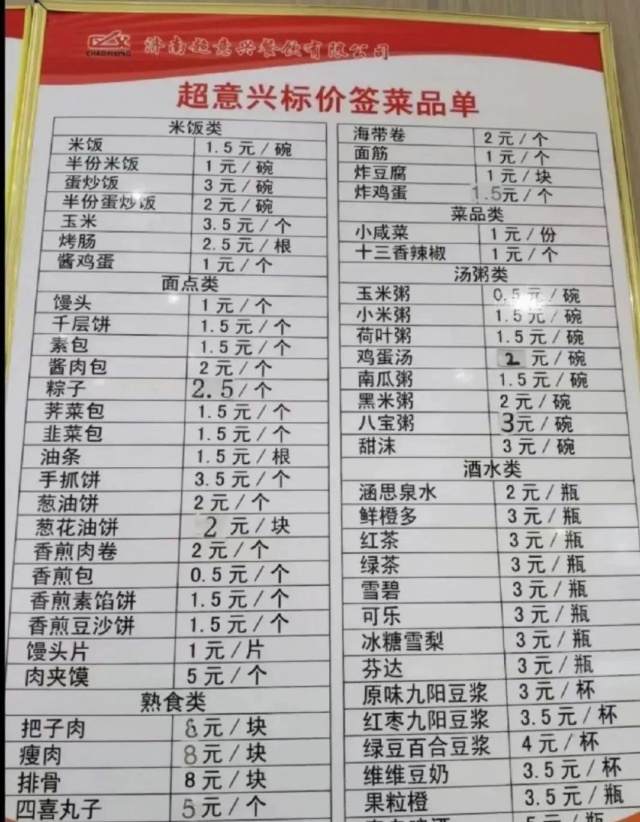 CHAOYIXING
济南超意兴餐饮有限公司
超意兴标价签菜品单
米饭类
米饭 1.5元/碗
半份米饭 1元/碗
蛋炒饭 3元/碗
半份蛋炒饭 2元/碗
玉米 3.5元/个
烤肠 2.5元/根
酱鸡蛋 1元/个
面点类
馒头 1元/个
千层饼 1.5元/个
素包 1.5元/个
酱肉包 2元/个
粽子 2.5/个
荠菜包 1.5元/个
韭菜包 1.5元/个
油条 1.5元/根
手抓饼 3.5元/个
葱油饼 2元/个
葱花油饼 2元/块
香煎肉卷 2元/个
香煎包 0.5元/个
香煎素馅饼 1.5元/个
香煎豆沙饼 1.5元/个
馒头片 1元/片
肉夹馍 5元/个
熟食类
把子肉 8元/块
瘦肉 8元/块
排骨 8元/块
四喜丸子 5元/个
海带卷 2元/个
面筋 1元/个
炸豆腐 1元/块
炸鸡蛋 1.5元/个
菜品类
小咸菜 1元/份
十三香辣椒 1元/个
汤粥类
玉米粥 0.5元/碗
小米粥 1.5元/碗
荷叶粥 1.5元/碗
鸡蛋汤 2元/碗
南瓜粥 1.5元/碗
黑米粥 2元/碗
八宝粥 3元/碗
甜沫 3元/碗
酒水类
涵思泉水 2元/瓶
鲜橙多 3元/瓶
红茶 3元/瓶
绿茶 3元/瓶
雪碧 3元/瓶
可乐 3元/瓶
冰糖雪梨 3元/瓶
芬达 3元/瓶
原味九阳豆浆 3元/杯
红枣九阳豆浆 3.5元/杯
绿豆百合豆浆 4元/杯
维维豆奶 3.5元/杯
果粒橙 3.5元/瓶